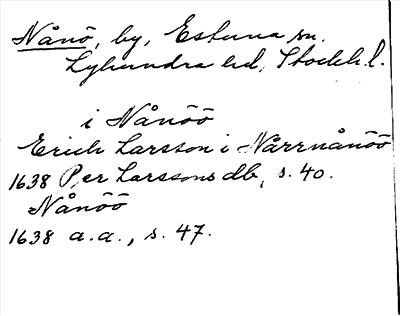 Nånö, by, Estuna sn.
Lyhundra hd, Stockh. l.
i Nånöö
Erich Larsson i Nårrnånöö
1638 Per Larssons db, s. 40.
Nånöö
1638 a.a., s. 47.